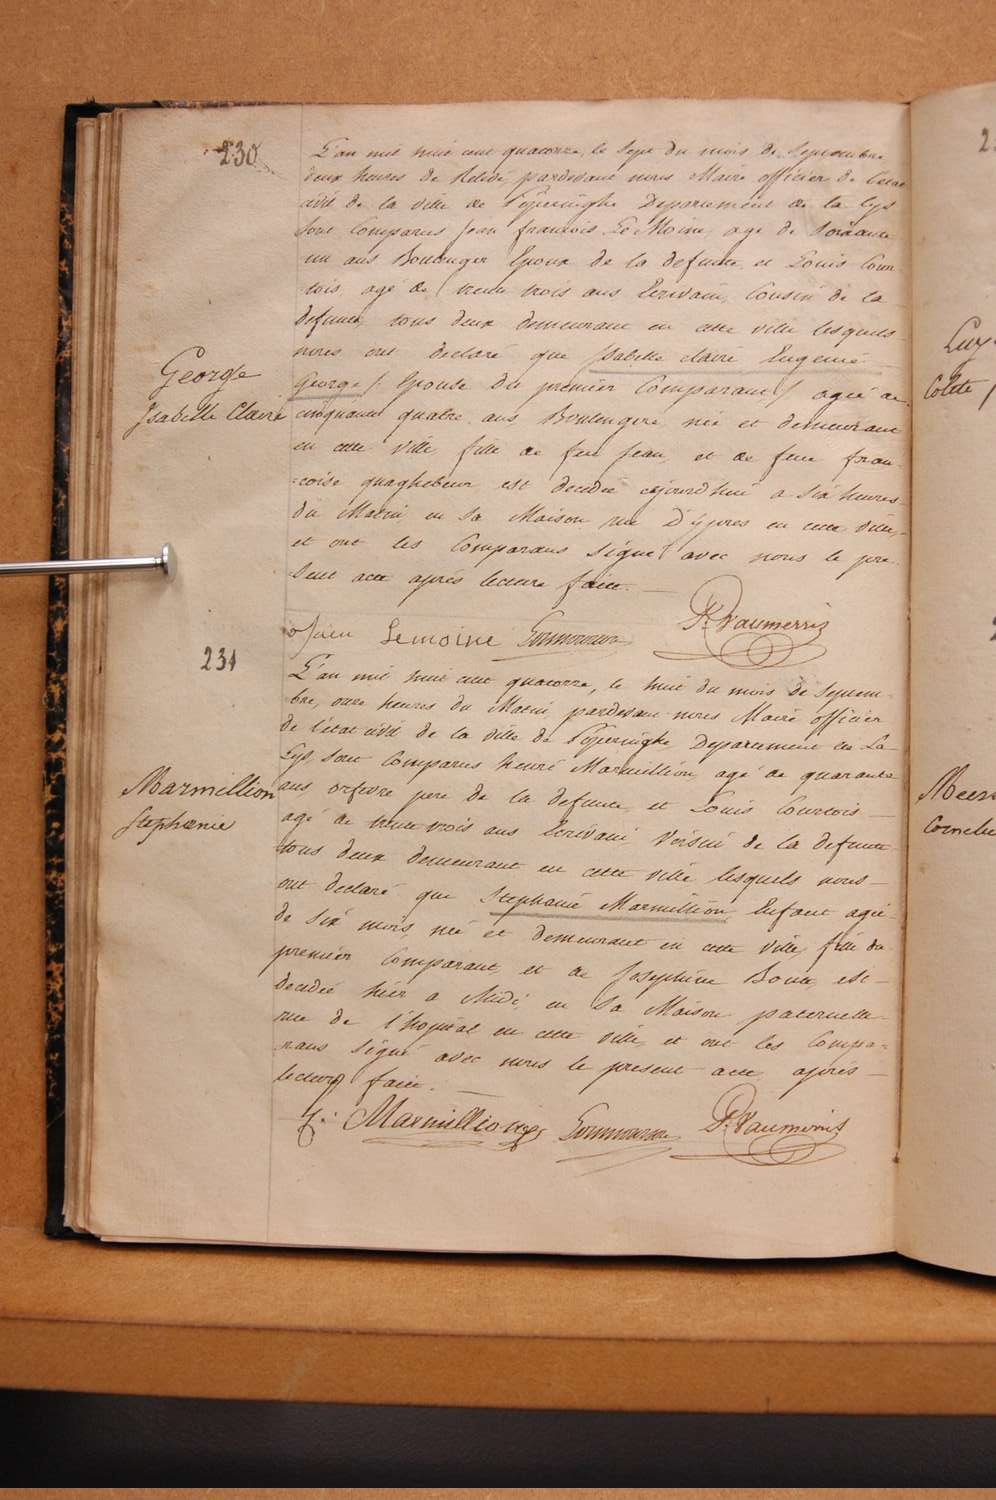 230
L'an mil huit cent quatorze, le sept du mois de Septembre
deux heures de Relevé, pardevant nous Maire officier de l'etat
civil de la ville de Poperinghe Departement de la Lys
sont Comparus Jean francois Le Moine, agé de soixante
un ans Boulenger Epoux de la defunte, et Louis Cour-
tois, agé de trente trois ans Ecrivain, Cousin de la
defunte, tous deux demeurant en cette ville lesquels
nous ont declaré que Isabelle claire Eugenie
George /: Epouse du premier Comparant / agée de
George
Isabelle Claire
cinquante quatre ans Boulengere née et demeurant
en cette ville, fille de feu Jean, et de feue fran-
=coise quaghebeur, est decedée aujourd'hui a six heures
du Matin, en sa Maison rue D'ypres en cette ville,
et ont les Comparans signé avec nous le pre-
sent acte après lecture faite. —
Lemoine P. Vaumerris
231
L'an mil huit cent quatorze, le huit du mois de Septem-
bre, onze heures du Matin pardevant nous Maire officier
de l'état civil de la ville de Poperinghe Departement de La
Lys, sont Comparus henri Marmillion, agé de quarante
ans orfevre pere de la defunte et Louis Courtois —
Marmillion
Stephanie
agé de trente trois ans Ecrivain Voisin de la defunte
tous deux demeurant en cette ville lesquels nous —
ont declaré que Stephanie Marmillion, Enfant agée
de six mois née et demeurant en cette ville, fille du
premier Comparant, et de Josephine Boute, est —
decedée hier a Midi, en sa Maison paternelle
rue de l'hopital en cette ville, et ont les Compa=
rans signé avec nous le present acte après —
lecture faite. —
Marmillion P. Vaumerris
Colette